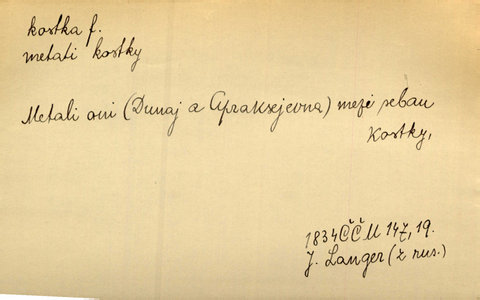 kostka f.
metati kostky
Metali oni (Dunaj a Apraksejevna) mezi sebau
kostky,
1834 ČČM 147, 19.
J. Langer (z rus.)